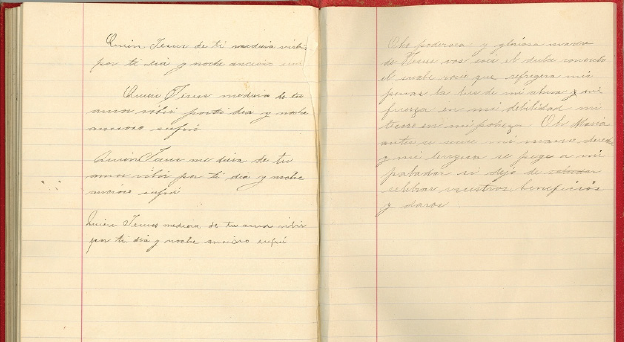 Quien Jesus de ti
por ti dia y noche
Quien Jesus me diera de tu
amor vivir por ti dia y noche
ancioso sufrir
Quien Jesus me diera de tu
amor vivir por ti dia y noche
ancioso sufrir
Quien Jesus me diera de tu amor vivir
por ti dia y noche ancioso sufrir
Oh poderosa y gloriosa
de Jesus vos sois el
el que refrigera mis
penas la luz de mi alma y mi
fuerza en mi debilidad mi
en mi pobreza Oh Maria
antes se mi mano
y mi lengua se pegue a mi
paladar si dejo de
celebrar vuestros beneficios
y